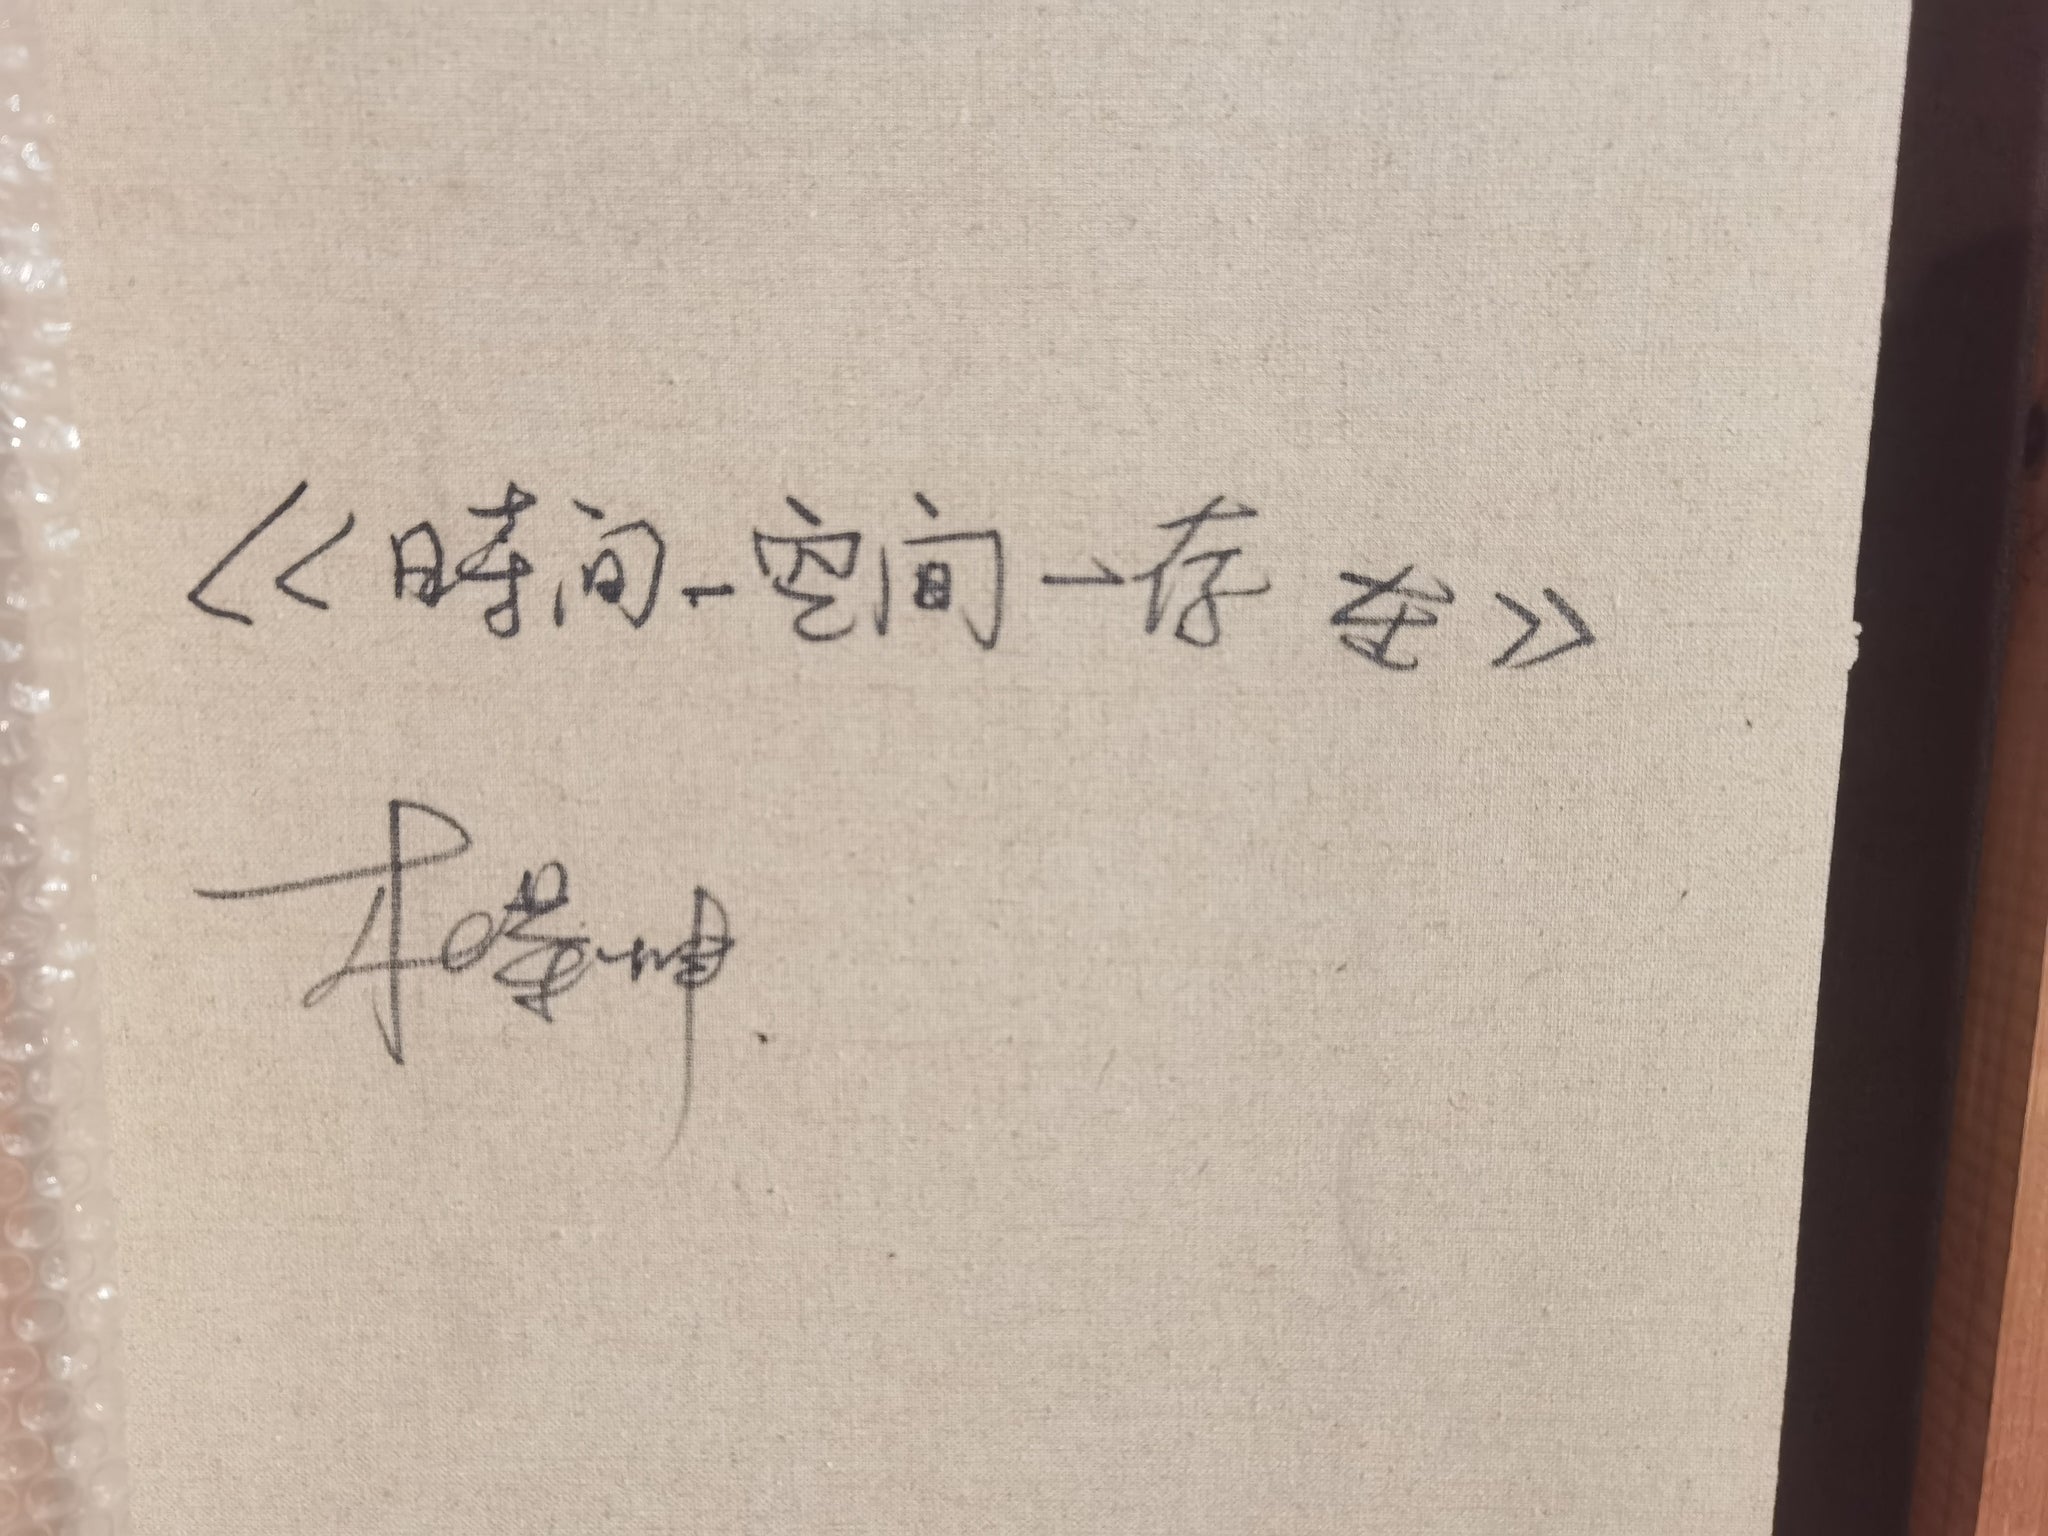 《時间-空间-存在》